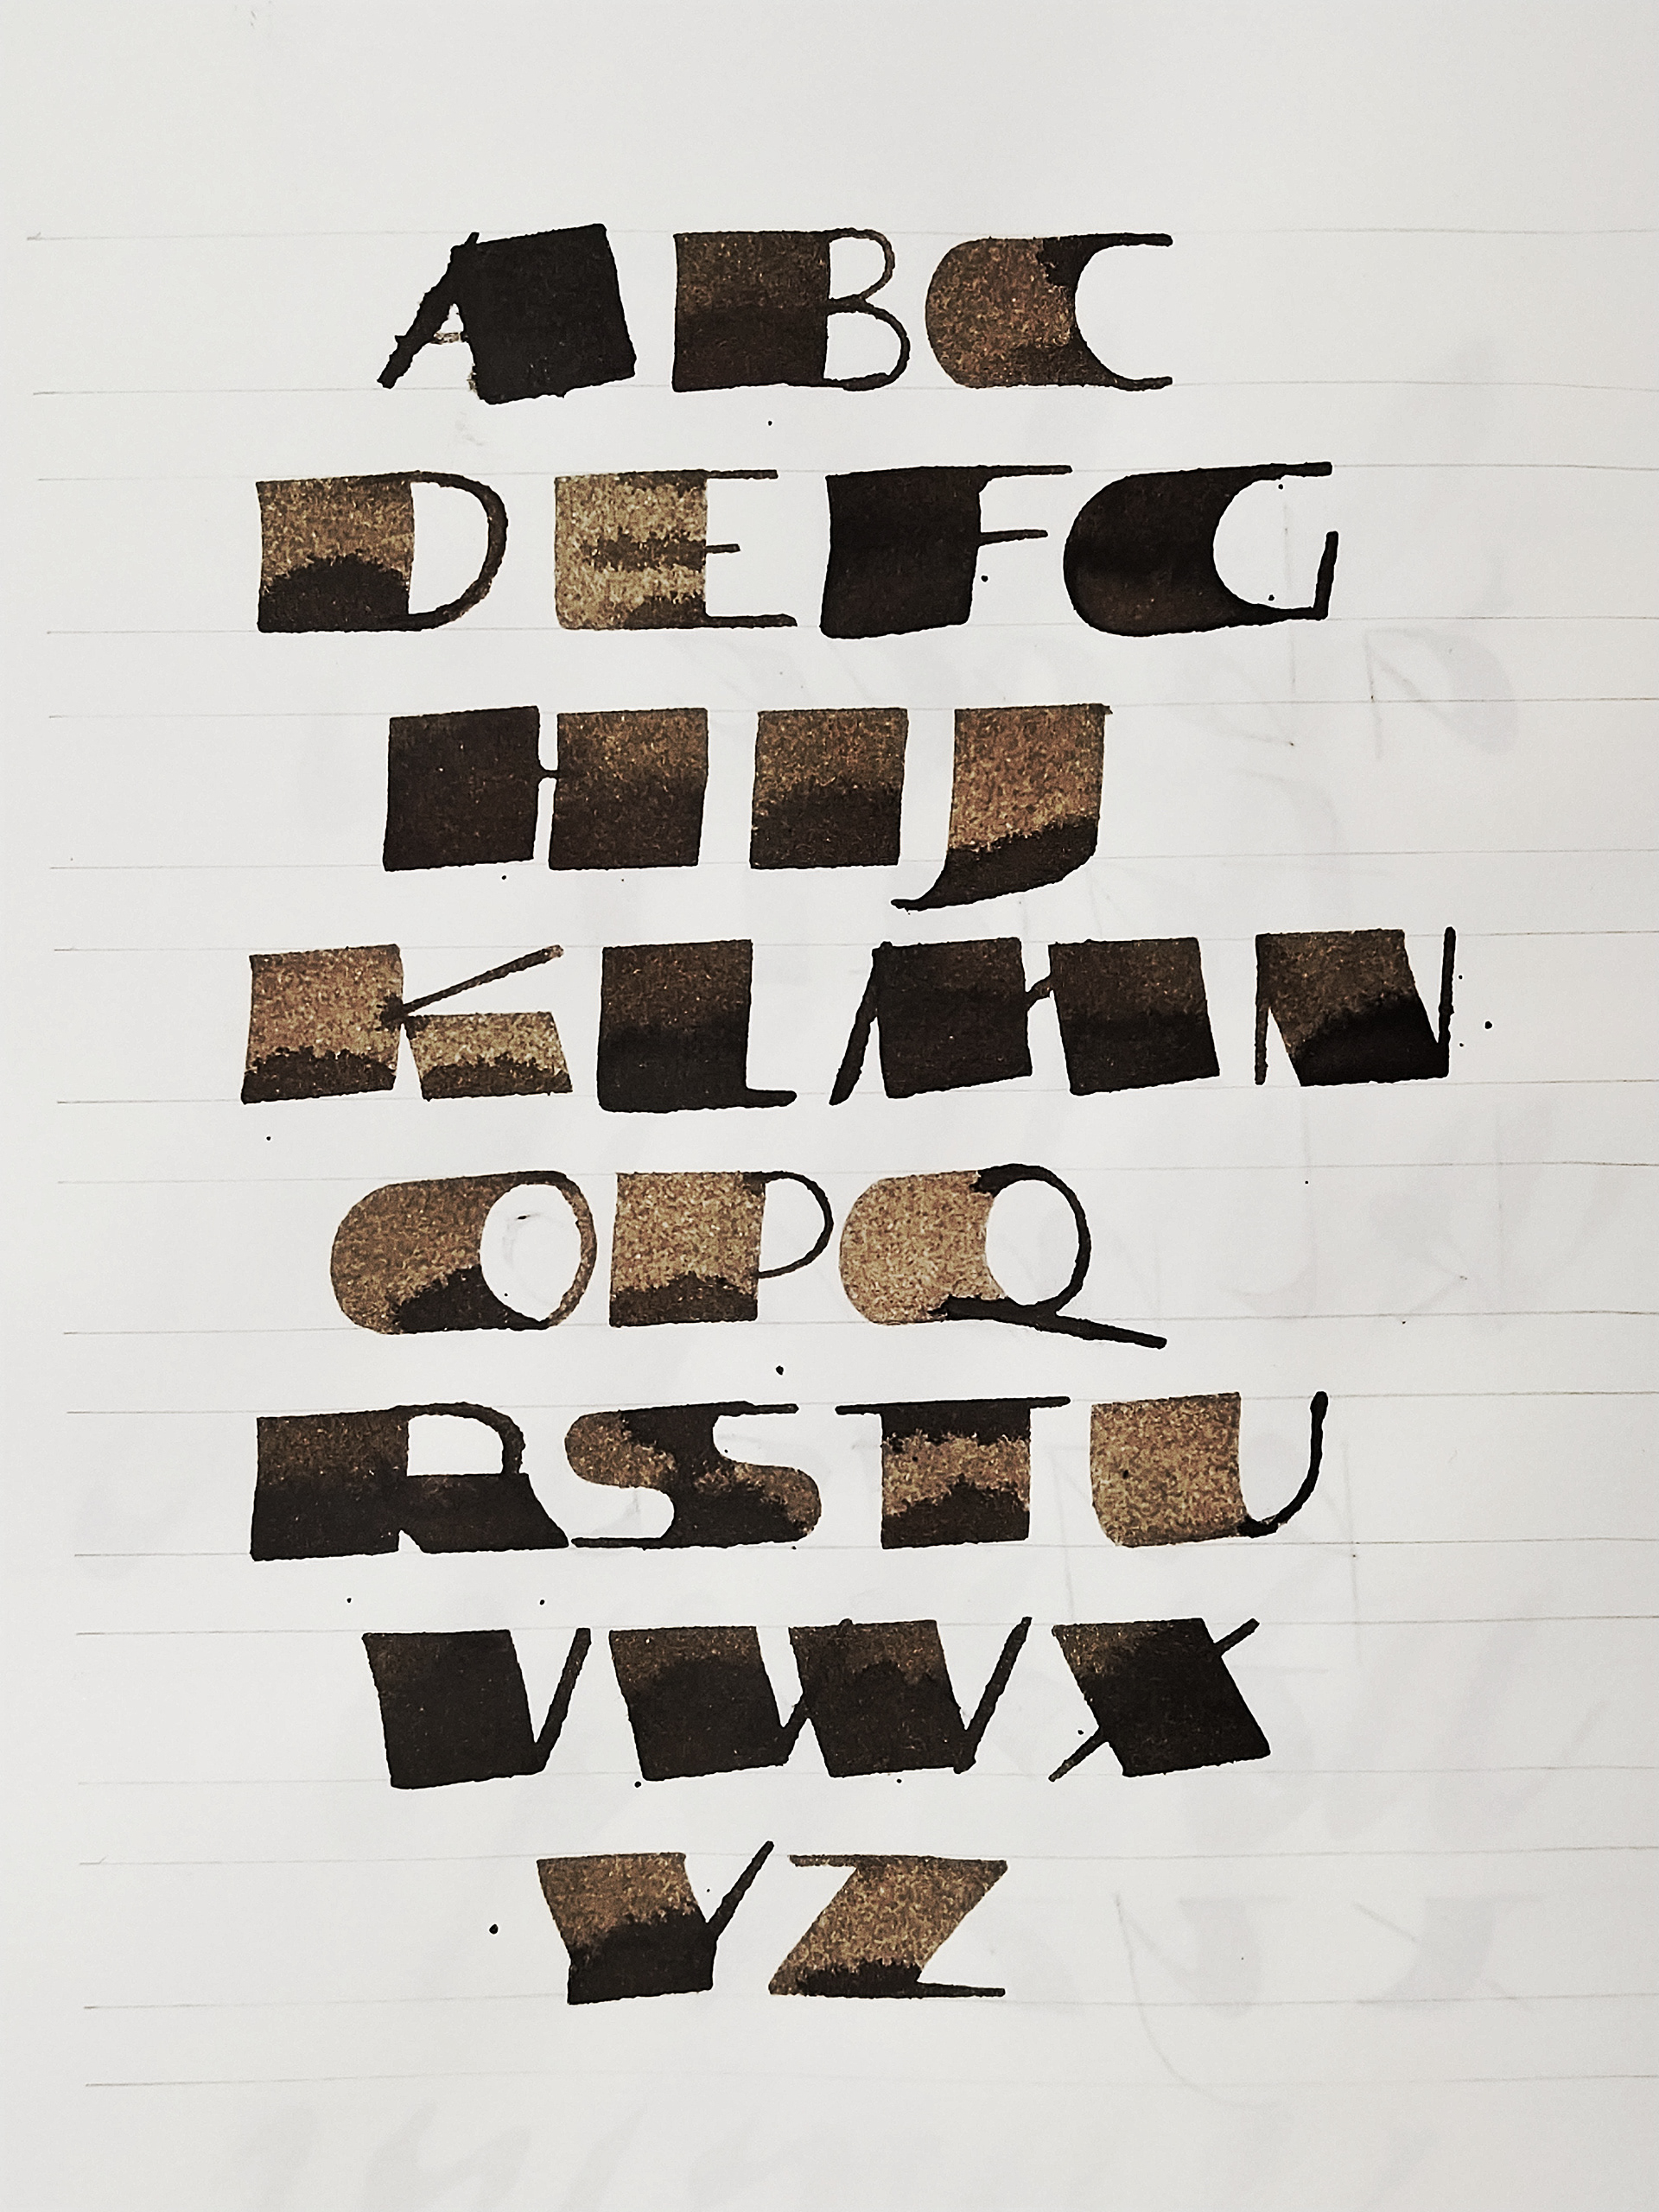 ABC
DEFG
HIJ
KLMN
OPQ
RSTU
VWX
YZ